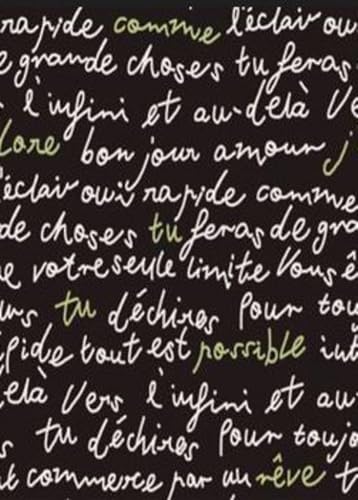 rapide comme l'éclair ou
e grande choses tu feras
l'infini et au-delà V
lore bon jour amour j
l'éclair ouii rapide comme
de choses tu feras de gra
e votre seule limite Vous ê
urs tu déchires Pour tou
pide tout est possible int
elà Vers l'infini et au-
s tu déchires Pour toujo
t commerce par un rêve t